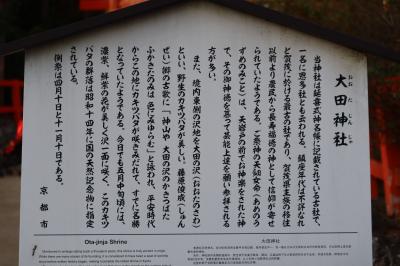 大田神社
おおたじんじゃ
当神社は延喜式神名帳に記載されている古社で、
一名に恩多社とも云われる。鎮座年代は不詳なれ
ど賀茂に於ける最古の社であり、賀茂県主族の移住
以前より農民から長寿福徳の神として信仰が寄せ
られていたようである。ご祭神の天鈿女命(あめのう
ずめのみこと)は、天岩戸の前でお神楽をされた神
で、その御神徳を慕って芸能上達を願い参拝される
方が多い。
また、境内東側の沢地を大田の沢(おおたのさわ)
といい、野生のカキツバタが美しい。藤原俊成(しゅん
ぜい)卿の古歌に「神山や大田の沢のかきつばた
ふかきたのみは色にみゆらむ」と詠われ、平安時代
からこの地にカキツバタが咲きみだれて、すでに名勝
となっていたようである。今日でも五月中旬頃には、
濃紫、鮮紫の花が美しく沢一面に咲く。このカキツ
バタの群落は昭和十四年に国の天然記念物に指定
されている。
例祭は四月十日と十一月十日である。
京都市
Ota-jinja Shrine
大田神社